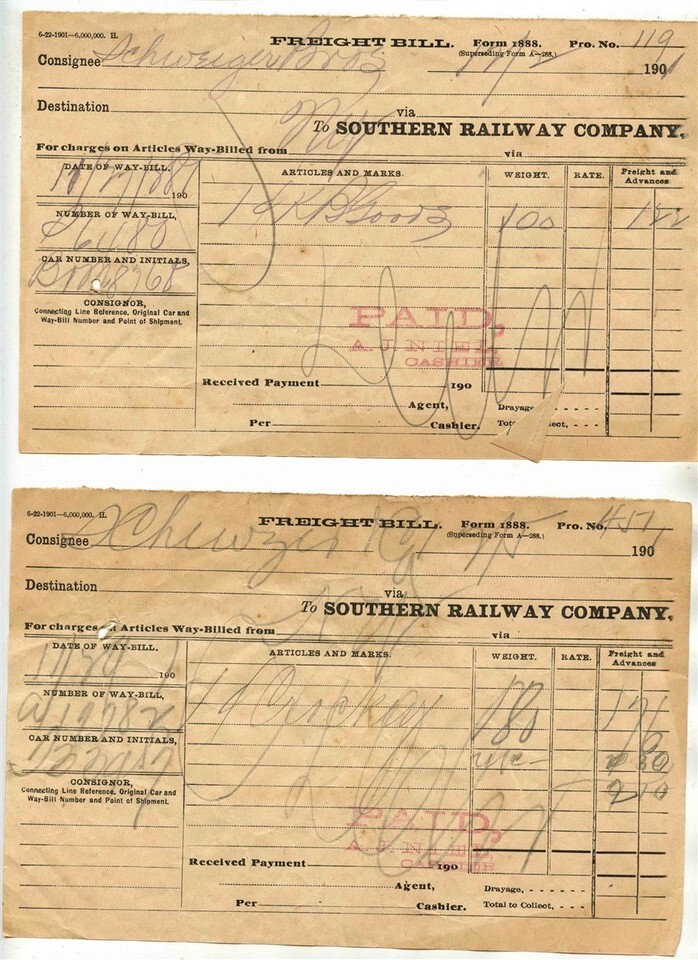 6-22-1901—6,000,000. H.
FREIGHT BILL. Form 1888. Pro. No. 119
(Superseding Form A—288.)
Consignee Schweizer Bros 1901
Destination via
To SOUTHERN RAILWAY COMPANY,
For charges on Articles Way-Billed from NY via
DATE OF WAY-BILL, ARTICLES AND MARKS. WEIGHT. RATE. Freight and Advances
190
NUMBER OF WAY-BILL, Goods 100 122
CAR NUMBER AND INITIALS,
CONSIGNOR,
Connecting Line Reference, Original Car and
Way-Bill Number and Point of Shipment.
PAID,
A. J. NIEL,
CASHIER
Received Payment 190
Agent, Drayage
Per Cashier. Collect,
6-22-1901—6,000,000. H.
FREIGHT BILL. Form 1888. Pro. No. 451
(Superseding Form A—288.)
Consignee 190
Destination via
To SOUTHERN RAILWAY COMPANY,
For charges on Articles Way-Billed from NY via
DATE OF WAY-BILL. ARTICLES AND MARKS. WEIGHT. RATE. Freight and Advances
190
NUMBER OF WAY-BILL, 180 171
CAR NUMBER AND INITIALS,
CONSIGNOR, 210
Connecting Line Reference, Original Car and
Way-Bill Number and Point of Shipment.
PAID,
A. J. NIEL,
CASHIER
Received Payment 190
Agent, Drayage,
Per Cashier. Total to Collect,